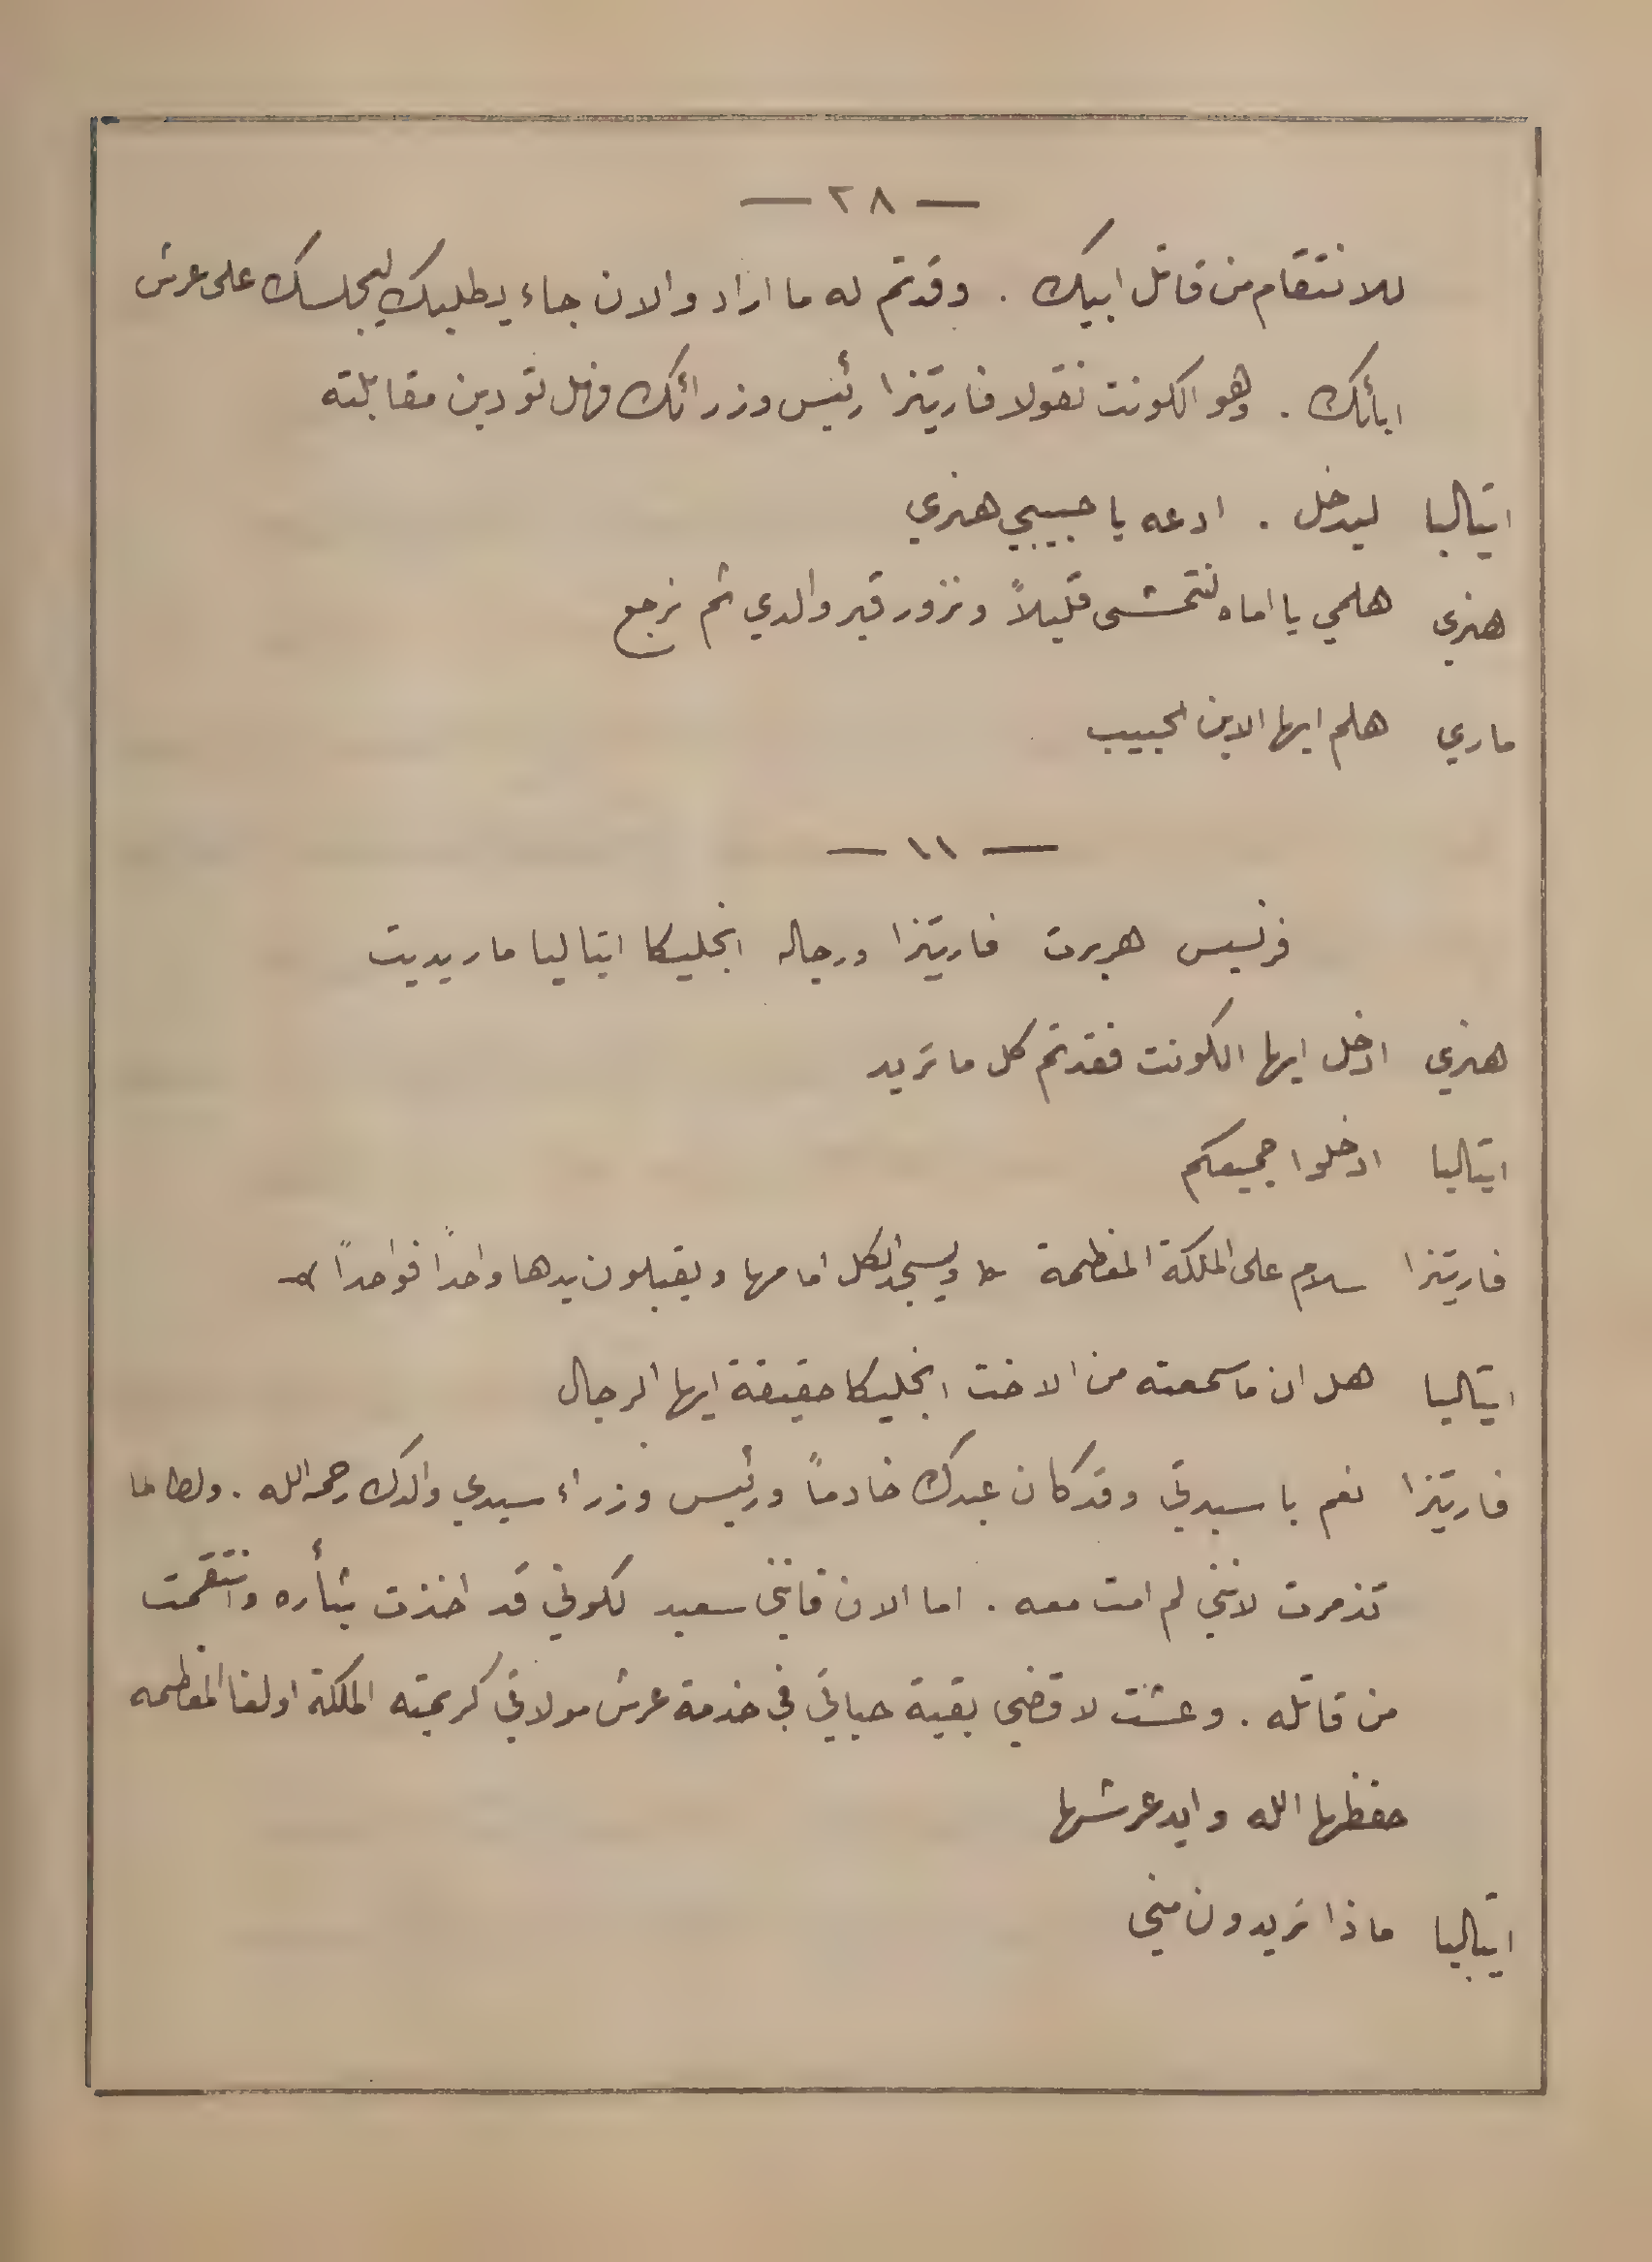 — ٢٨ —
للانتقام من قاتل ابيك . وقد تم له ما اراد والان جاء يطلبك ليجلسك على عرش
ابائك . وهو الكونت نقولا فاريتزا رئيس وزرائك فهل تودين مقابلته
ايتاليا ليدخل . ادعه يا حبيبي هنري
هنري هلمي يا اماه لنتمشى قليلاً ونزور قبر والدي ثم نرجع
ماري هلم ايها الابن الحبيب
— ١١ —
فرنسيس هربرت فاريتزا ورجاله انجليكا ايتاليا ماريديت
هنري ادخل ايها الكونت فقد تم كل ما تريد
ايتاليا ادخلوا جميعكم
فاريتزا سلام على الملكة المعظمة ويسجد الكل امامها ويقبلون يدها واحداً فواحداً
ايتاليا هل ان ما سمعته من الاخت انجليكا حقيقة ايها الرجال
فاريتزا نعم يا سيدتي وقد كان عبدك خادماً ورئيس وزراء سيدي والدك رحمه الله . ولطالما
تذمرت لانني لم امت معه . اما الان فانني سعيد لكوني قد اخذت بثأره وانتقمت
من قاتله . وعشت لاقضي بقية حياتي في خدمة عرش مولاتي كريمته الملكة اولغا المعظمه
حفظها الله وايد عرشها
ايتاليا ماذا تريدون مني